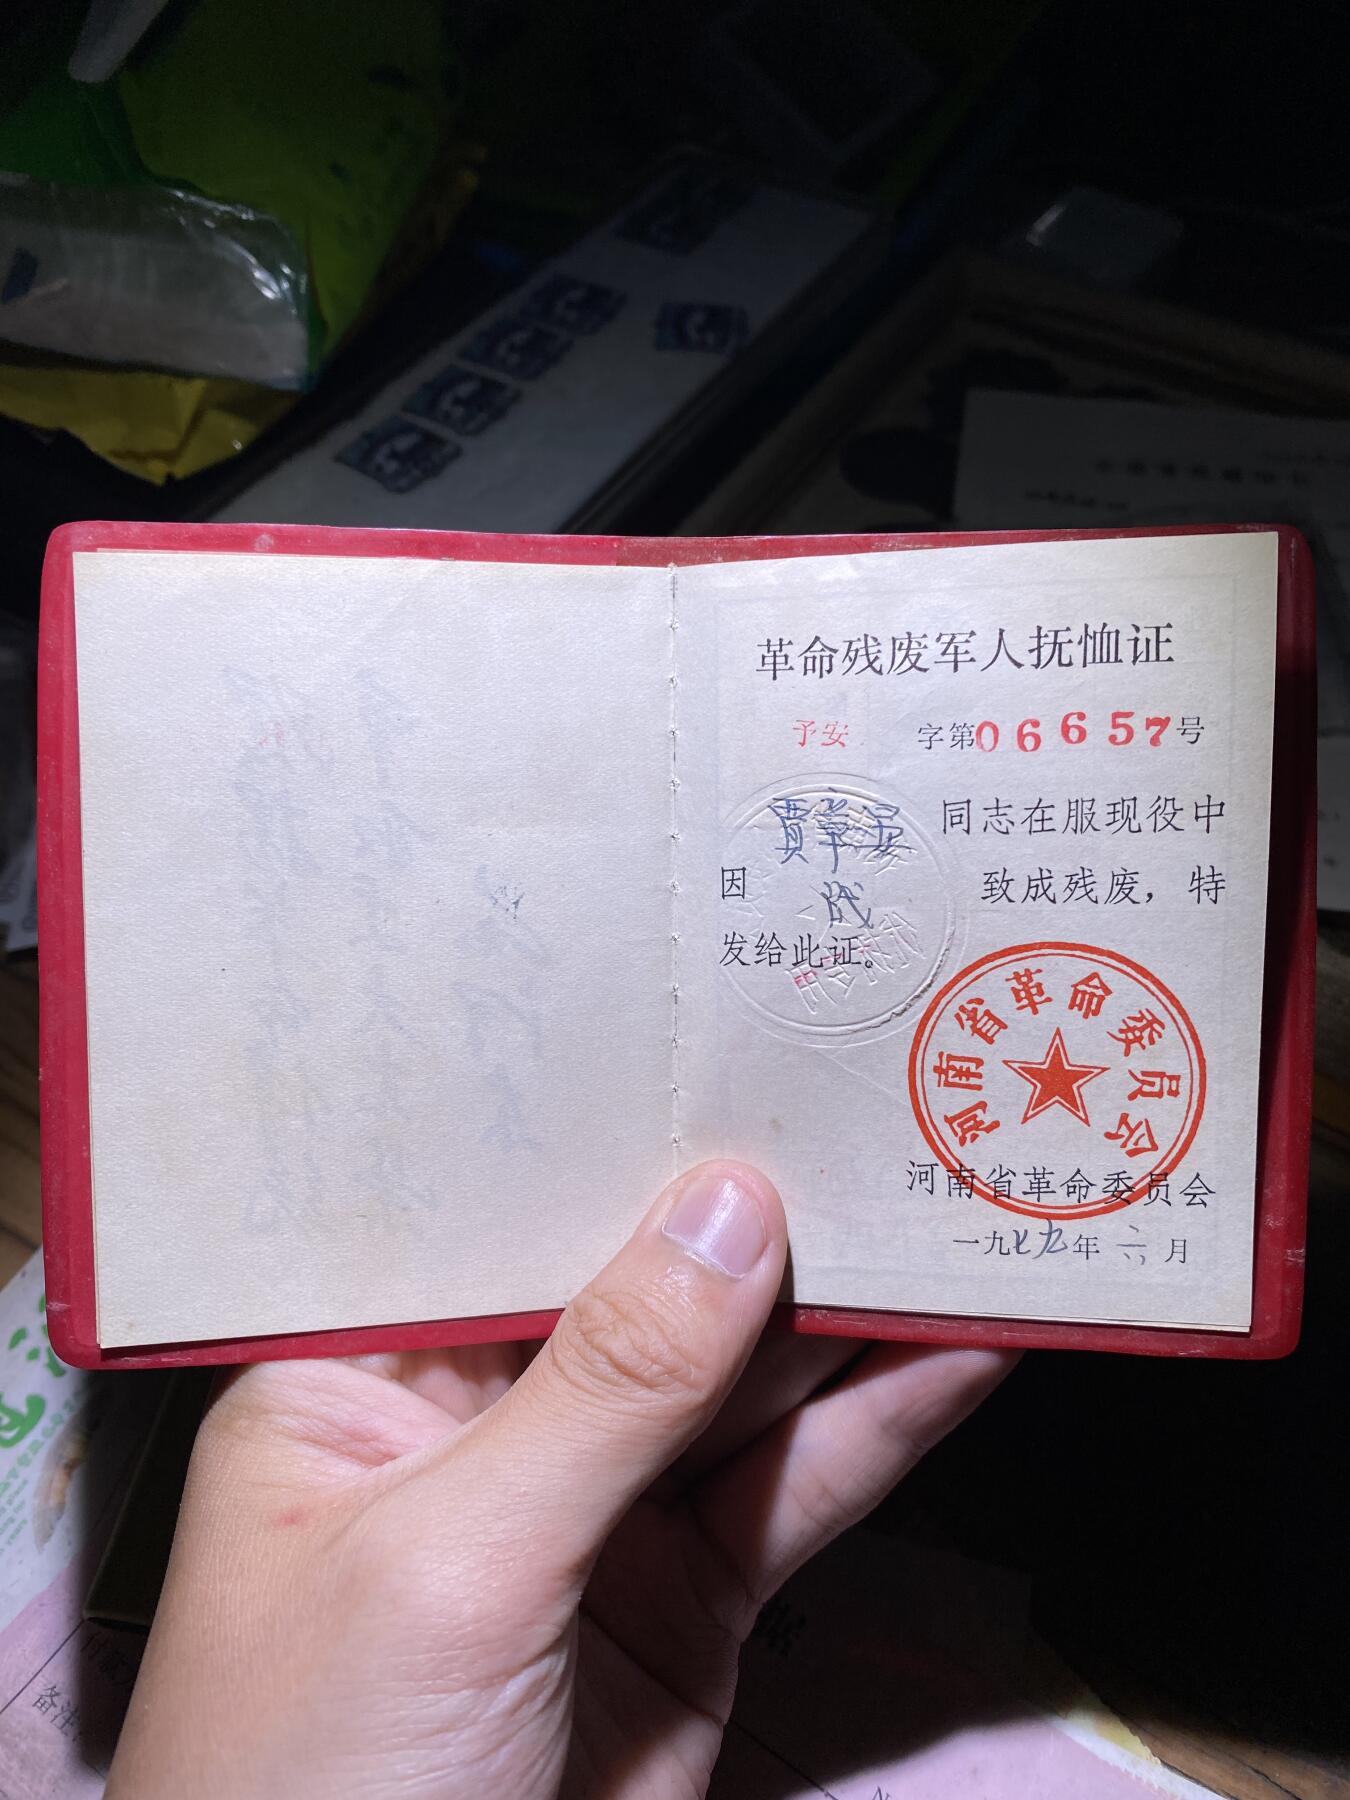 革命残废军人抚恤证
予安 字第06657号
贾章安 同志在服现役中
因 战 致成残废，特
发给此证。
河南省革命委员会
河南省革命委员会
一九七九年 六 月
备注